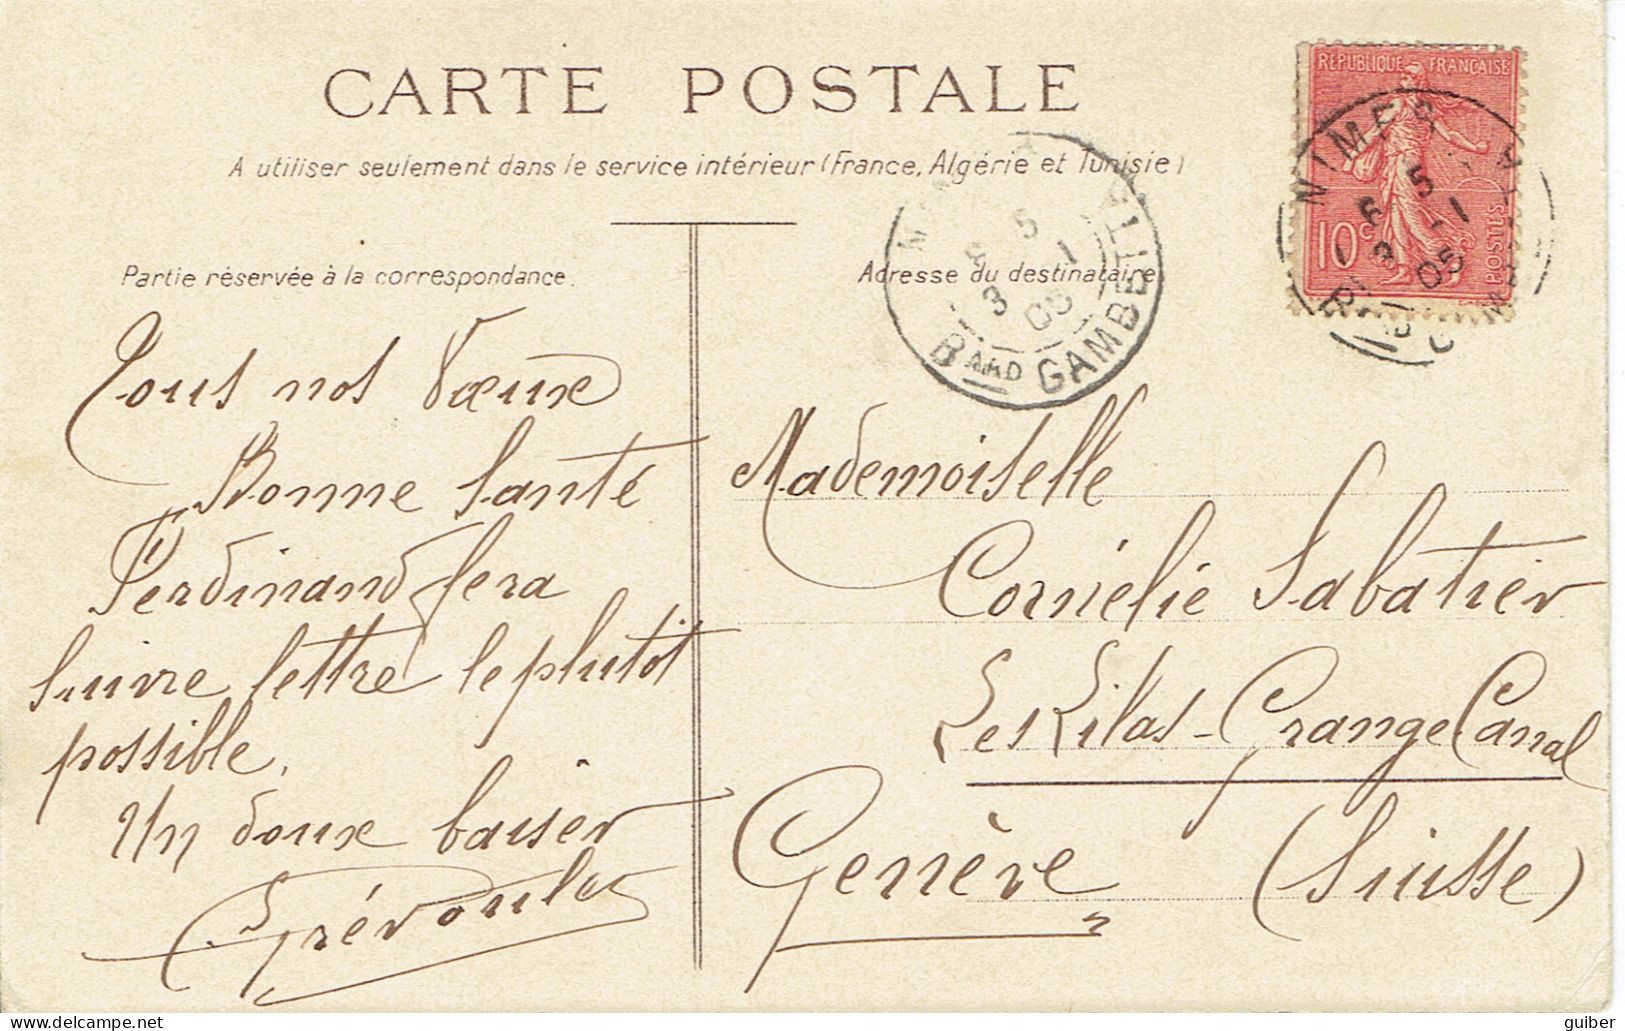 CARTE POSTALE
A utiliser seulement dans le service intérieur (France, Algérie et Tunisie)
Partie réservée à la correspondance.
Adresse du destinataire
RÉPUBLIQUE FRANÇAISE
10c
POSTES
NIMES
5
3 - 1
05
5
3 1
05
Bard GAMBETTA
Tous nos Vœux
Bonne Santé
Ferdinand fera
Suivre lettre le plutôt
possible.
Un doux baiser
Mademoiselle
Cornélie Sabatier
Les Lilas - Grange Canal
Genève (Suisse)
guiber